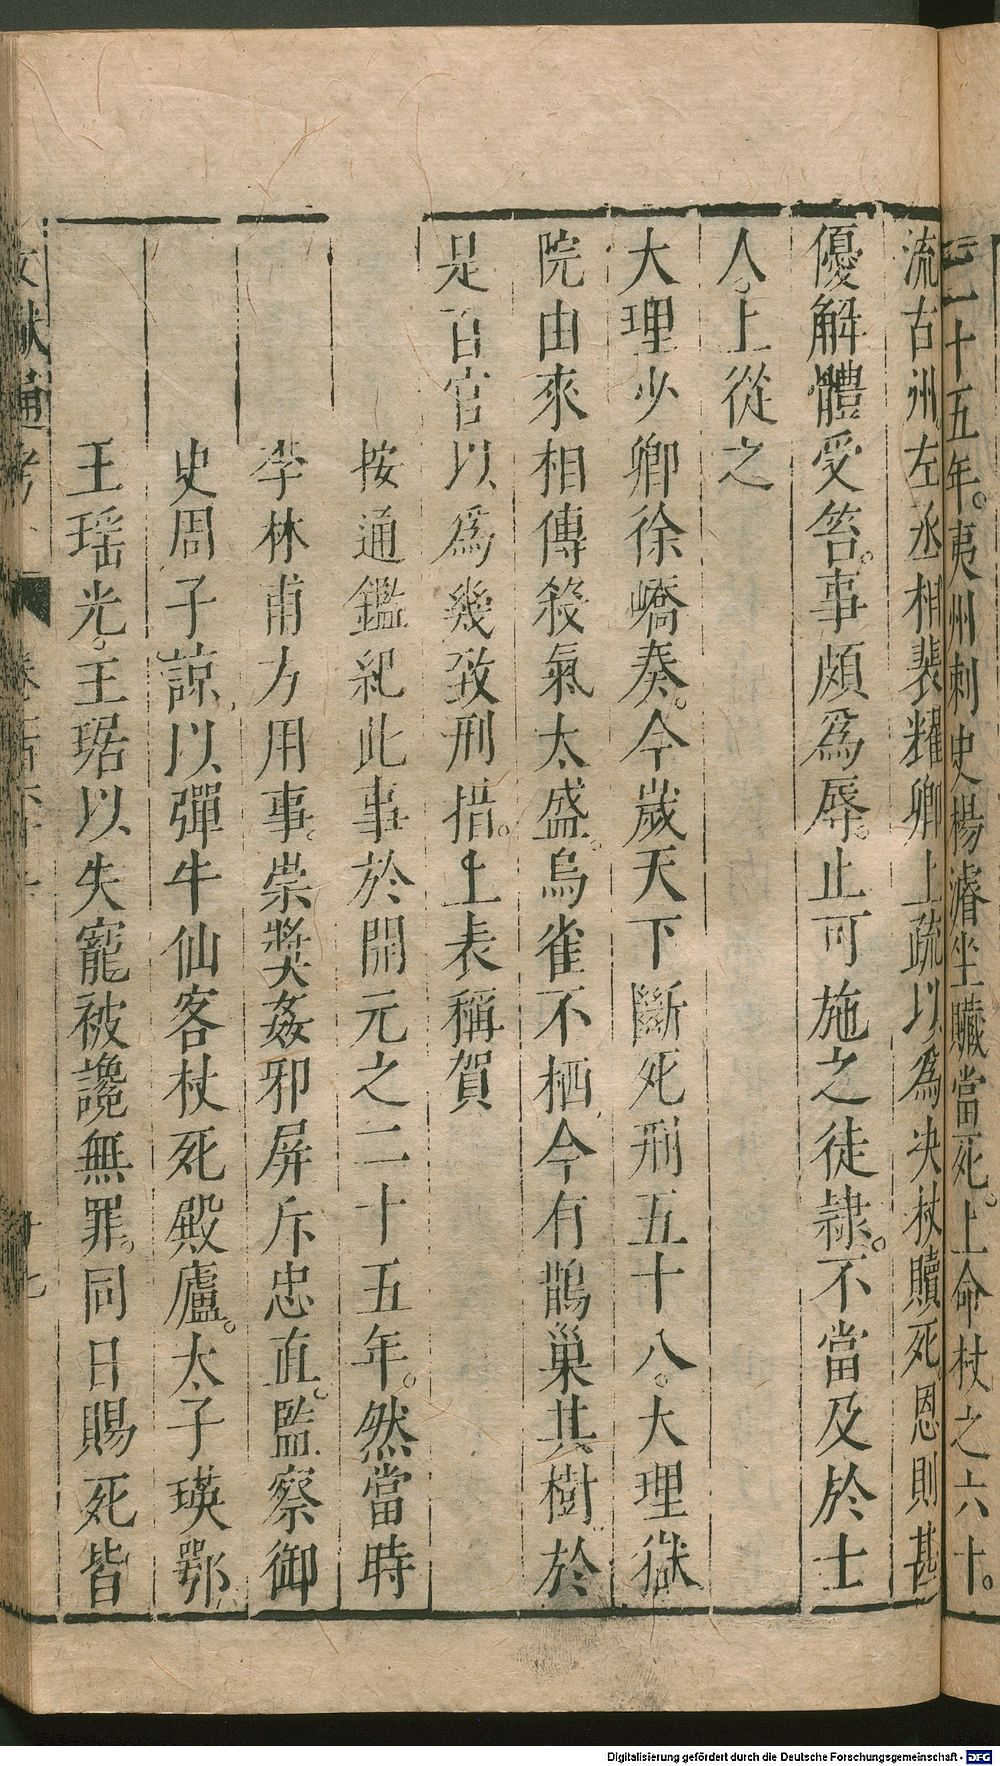 二十五年。夷州刺史楊濬坐贓當死。上命杖之六十。
流古州。左丞相裴耀卿上疏以爲决杖贖死。恩則甚
優解體受笞。事頗爲辱。止可施之徒隷。不當及於士
人。上從之
大理少卿徐嶠奏。今歲天下斷死刑五十八。大理獄
院由來相傳殺氣太盛。烏雀不栖。今有鵲巢其樹。於
是百官以爲幾致刑措。上表稱賀
按通鑑紀此事於開元之二十五年。然當時
李林甫方用事。崇奬姦邪屏斥忠直。監察御
史周子諒。以彈牛仙客杖死殿廬。太子瑛鄂
王瑶光。王琚以失寵被讒無罪。同日賜死皆
文獻通考
Digitalisierung gefördert durch die Deutsche Forschungsgemeinschaft - DFG